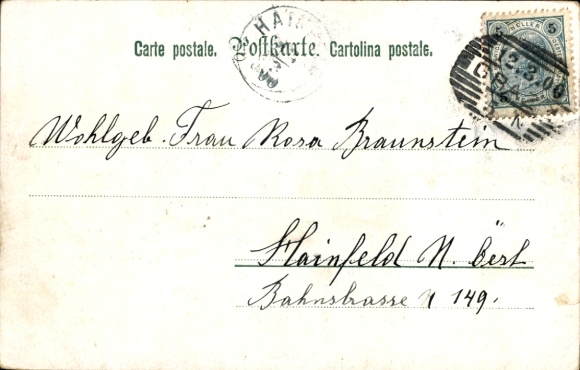 Carte postale. Postkarte. Cartolina postale.
HAIN
5 HELLER 5
GRAZ
Wohlgeb. Frau Rosa Braunstein
Hainfeld N. öst
Bahnstrasse N 149.